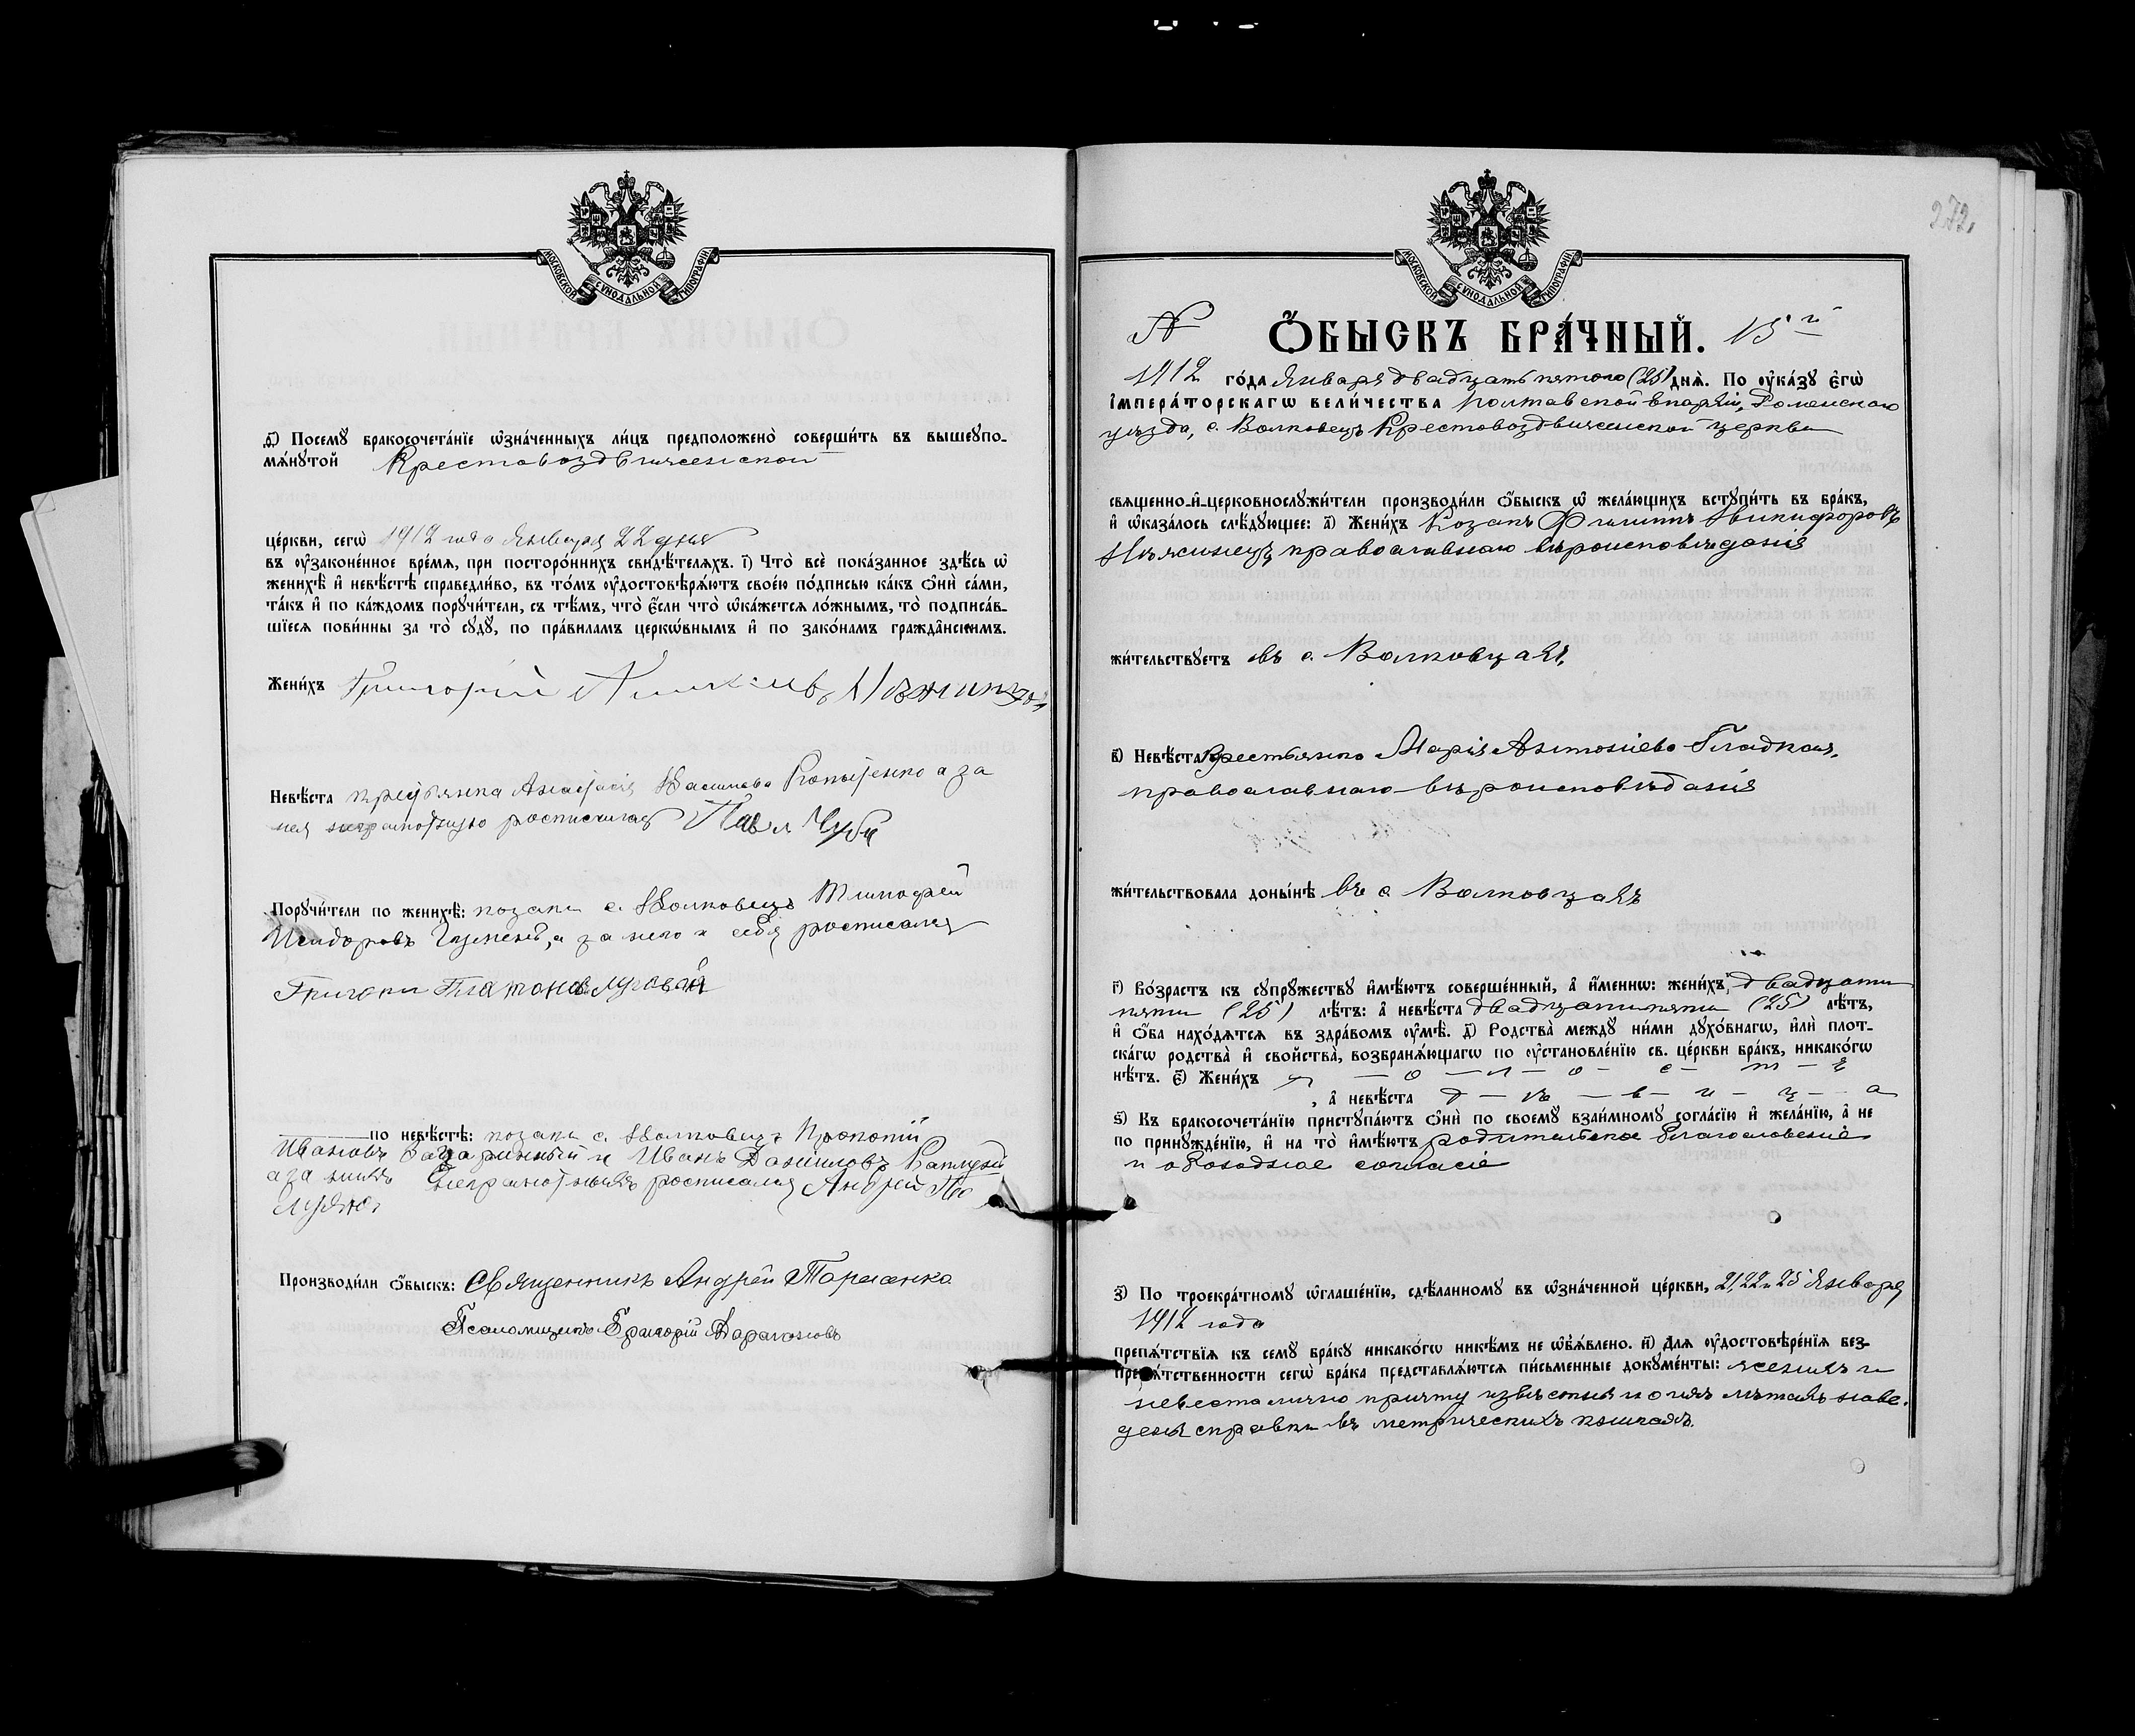 МОСКОВСКОЙ СѴНОДАЛЬНОЙ ТИПОГРАФІИ
ѳ҃) Посемꙋ̀ бракосочета́нїе ѡ҆зна́ченныхъ ли́цъ предположено̀ соверши́ть въ вышеупо-
мѧ́нꙋтой Крестовоздвиженской
це́ркви, сегѡ̀ 1912 года Января 22 дня
въ ᲂу҆зако́ненное вре́мѧ, при посторо́ннихъ свидѣ́телѧхъ. і҃) Что̀ всѐ пока́занное здѣ́сь ѡ҆
женихѣ̀ и҆ невѣ́стѣ справедли́во, въ то́мъ ᲂу҆достовѣрѧ́ютъ свое́ю по́дписью ка́къ ѻ҆нѝ са́ми,
та́къ и҆ по ка́ждомъ порꙋчи́тели, съ тѣ́мъ, что̀ є҆́сли что̀ ѡ҆ка́жетсѧ ло́жнымъ, то̀ подписа́в-
шїесѧ пови́нны за то̀ сꙋдꙋ̀, по пра́виламъ церкѡ́внымъ и҆ по зако́намъ гражда̑нскимъ.
Жени́хъ Григорій
Невѣ́ста крестьянка Анастасія Васильева а за
нея неграмотную росписался Павл Чуб
Порꙋчи́тели по женихѣ̀: козаки с. Волковец Тимофей
Исидоровъ а за него и себя росписался
Григори Платонов Луговый
по невѣ́стѣ: козаки с. Волковец Прокопій
Ивановъ и Иванъ Даниловъ
а за нихъ неграмотныхъ росписался Андрей
Производи́ли ѻ҆́быскъ: Священникъ Андрей Тарасенко
Псаломщикъ Григорій
272.
МОСКОВСКОЙ СѴНОДАЛЬНОЙ ТИПОГРАФІИ
№ Ѻ҆́БЫСКЪ БРА́ЧНЫЙ. 15й
1912 го́да Января двадцать пятого (25) днѧ̀. По ᲂу҆ка́зꙋ є҆гѡ̀
і҆мпера́торскагѡ вели́чества Полтавской Епархіи, Роменскаго
уезда, с. Волковецъ Крестовоздвиженской церкви
свѧщенно-и҆-церковнослꙋжи́тели производи́ли ѻ҆́быскъ ѡ҆ жела́ющихъ встꙋпи́ть въ бра́къ,
и҆ ѡ҆каза́лось слѣ́дꙋющее: а҃) Жени́хъ Козакъ Филиппъ Никифоровъ
Нѣжинецъ, православнаго вѣроисповѣданія
жи́тельствꙋетъ въ с. Волковцахъ,
в҃) Невѣ́ста Крестьянка Марія Антоніева Гладкая,
православнаго вѣроисповѣданія
жи́тельствовала доны́нѣ въ с. Волковцахъ
г҃) Во́зрастъ къ сꙋпрꙋ́жествꙋ и҆мѣ́ютъ соверше́нный, а҆ и҆́менно: жени́хъ двадцати
пяти (25) лѣ́тъ: а҆ невѣ́ста двадцати пяти (25) лѣ́тъ,
и҆ ѻ҆́ба нахо́дѧтсѧ въ здра́вомъ ᲂу҆мѣ̀. д҃) Родства̀ междꙋ ни́ми дꙋхо́внагѡ, и҆лѝ плот-
ска́гѡ родства̀ и҆ сво́йства, возбранѧ́ющагѡ по ᲂу҆становле́нїю св. це́ркви бра́къ, никако́гѡ
нѣ́тъ. є҃) Жени́хъ х — о — л — о — с — т — ъ
, а҆ невѣ́ста д — ѣ — в — и — ц — а
ѕ҃) Къ бракосочета́нїю пристꙋпа́ютъ ѻ҆нѝ по своемꙋ̀ взаи́мномꙋ согла́сїю и҆ жела́нїю, а҆ не
по принꙋжде́нїю, и҆ на то̀ и҆мѣ́ютъ родительское благословеніе
и обоюдное согласіе
з҃) По троекра́тномꙋ ѡ҆глаше́нїю, сдѣ́ланномꙋ въ ѡ҆зна́ченной це́ркви, 21, 22 и 25 Января
1912 года
препѧ́тствїѧ къ семꙋ̀ бра́кꙋ никако́гѡ никѣ́мъ не ѡ҆б̾ѧ́влено. и҃) Длѧ̀ ᲂу҆достовѣре́нїѧ без-
препѧ́тственности сегѡ̀ бра́ка представлѧ́ютсѧ пи́сьменные докꙋме́нты: женихъ и
невеста лично причту извѣстны и о ихъ лѣтахъ наве-
дены справки въ метрическихъ книгахъ.